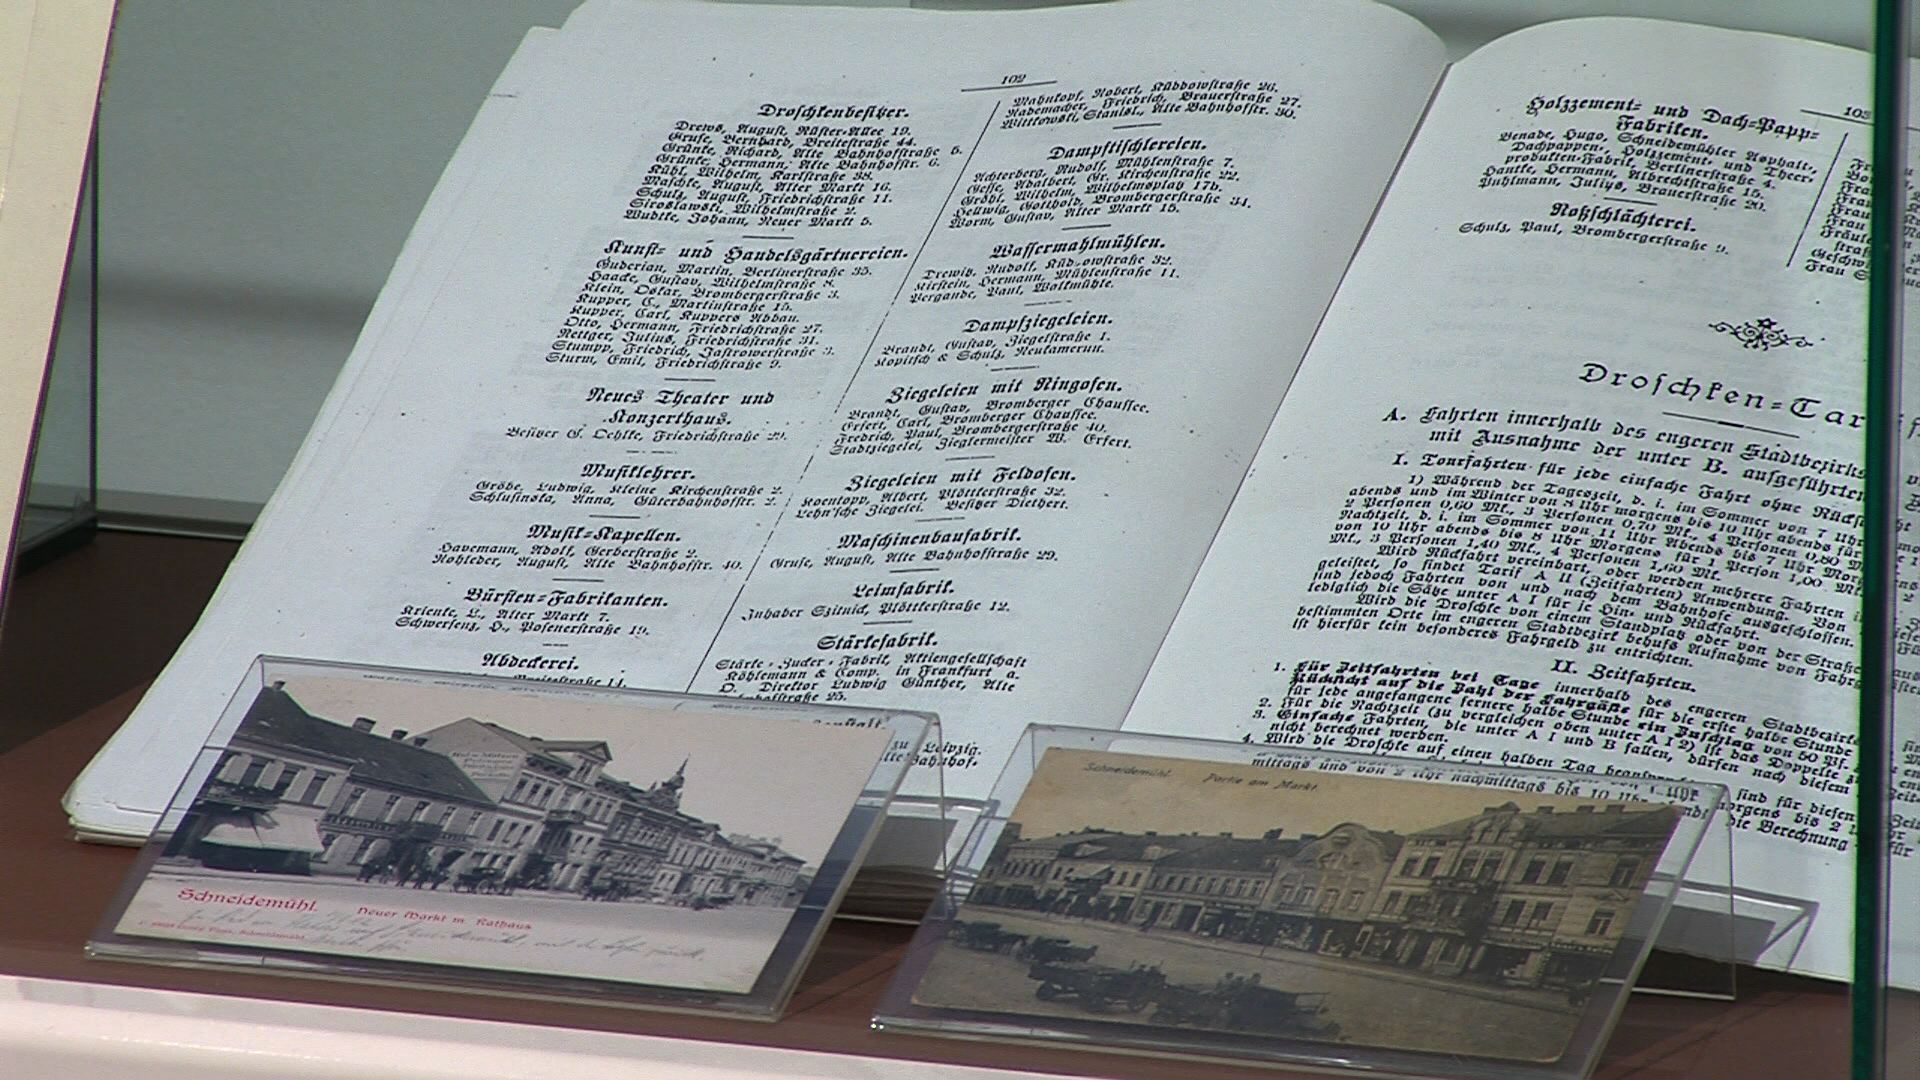 102
Droschkenbesitzer.
Drews, August, Rüster-Allee 19.
Gruse, Bernhard, Breitestraße 44.
Grünke, Richard, Alte Bahnhofstraße 5.
Grünke, Hermann, Alte Bahnhofstr. 6.
Kühl, Wilhelm, Karlstraße 38.
Maschke, August, Alter Markt 16.
Schulz, August, Friedrichstraße 11.
Siroslawski, Wilhelmstraße 2.
Wudtke, Johann, Neuer Markt 5.
Kunst- und Handelsgärtnereien.
Guderian, Martin, Berlinerstraße 35.
Haacke, Gustav, Wilhelmstraße 8.
Klein, Oskar, Brombergerstraße 3.
Kupper, C., Martinstraße 15.
Kupper, Carl, Kuppers Abbau.
Otto, Hermann, Friedrichstraße 27.
Rettger, Julius, Friedrichstraße 31.
Stumpp, Friedrich, Jastrowerstraße 3.
Sturm, Emil, Friedrichstraße 9.
Neues Theater und
Konzerthaus.
Besitzer G. Oehlke, Friedrichstraße 29.
Musiklehrer.
Gröbe, Ludwig, Kleine Kirchenstraße 2.
Schlusinska, Anna, Güterbahnhofstr. 2.
Musik-Kapellen.
Havemann, Adolf, Gerberstraße 2.
Rohleder, August, Alte Bahnhofstr. 40.
Bürsten-Fabrikanten.
Krienke, L., Alter Markt 7.
Schwersenz, H., Posenerstraße 19.
Abdeckerei.
Breitestraße 14.
Mahnkopf, Robert, Küddowstraße 26.
Rademacher, Friedrich, Brauerstraße 27.
Wittkowski, Stanisl., Alte Bahnhofstr. 30.
Dampftischlereien.
Achterberg, Rudolf, Mühlenstraße 7.
Gesse, Adalbert, Gr. Kirchenstraße 22.
Gröhl, Wilhelm, Wilhelmsplatz 17b.
Hellwig, Gotthold, Brombergerstraße 34.
Worm, Gustav, Alter Markt 15.
Wassermahlmühlen.
Drewitz, Rudolf, Küddowstraße 32.
Kirstein, Hermann, Mühlenstraße 11.
Pergande, Paul, Walkmühle.
Dampfziegeleien.
Brandt, Gustav, Ziegelstraße 1.
Kopitsch & Schulz, Neukamerun.
Ziegeleien mit Ringofen.
Brandt, Gustav, Bromberger Chaussee.
Erfert, Carl, Bromberger Chaussee.
Fredrich, Paul, Brombergerstraße 40.
Stadtziegelei, Zieglermeister W. Erfert.
Ziegeleien mit Feldofen.
Koentopp, Albert, Plöttkerstraße 32.
Lehn'sche Ziegelei. Besitzer Diethert.
Maschinenbaufabrik.
Gruse, August, Alte Bahnhofstraße 29.
Leimfabrik.
Inhaber Szitnick, Plöttkerstraße 12.
Stärkefabrik.
Stärke-Zucker-Fabrik, Aktiengesellschaft
Köhlemann & Comp. in Frankfurt a.
O. Direktor Ludwig Günther, Alte
Bahnhofstraße 25.
zu Leipzig.
Alte Bahnhof-
103
Holzzement- und Dach-Papp-
Fabriken.
Benade, Hugo, Schneidemühler Asphalt-,
Dachpappen-, Holzzement- und Theer-
produkten-Fabrik, Berlinerstraße 4.
Hantke, Hermann, Albrechtstraße 15.
Puhlmann, Julius, Brauerstraße 20.
Roßschlächterei.
Schulz, Paul, Brombergerstraße 9.
Frau
Frau
Fräule
straß
Geschw
Frau S
Droschken-Tar
A. Fahrten innerhalb des engeren Stadtbezirks
mit Ausnahme der unter B. aufgeführten
I. Tourfahrten für jede einfache Fahrt ohne Rückf
1) Während der Tageszeit, d. i. im Sommer von 7 Uhr
abends und im Winter von 8 Uhr morgens bis 10 Uhr abends für
2 Personen 0,60 Mk., 3 Personen 0,70 Mk., 4 Personen 0,80 M
Nachtzeit, d. i. im Sommer von 11 Uhr Abends bis 7 Uhr Mor
von 10 Uhr abends bis 8 Uhr Morgens für 1 Person 1,00 Mk.
Mk., 3 Personen 1,40 Mk., 4 Personen 1,60 Mk.
Wird Rückfahrt vereinbart, oder werden mehrere Fahrten
geleistet, so findet Tarif A II (Zeitfahrten) Anwendung. Von
sind jedoch Fahrten von und nach dem Bahnhofe ausgeschlossen.
lediglich die Sätze unter A I für je Hin- und Rückfahrt.
Wird die Droschke von einem Standplatz oder von der Straße
bestimmten Orte im engeren Stadtbezirk behufs Aufnahme von Fahr
ist hierfür kein besonderes Fahrgeld zu entrichten.
II. Zeitfahrten.
1. Für Zeitfahrten bei Tage innerhalb des engeren Stadtbezirks
Rücksicht auf die Zahl der Fahrgäste für die erste halbe Stunde
für jede angefangene fernere halbe Stunde ein Zuschlag von 50 Pf.
2. Für die Nachtzeit (zu vergleichen oben unter A I 2) ist das Doppelte z
3. Einfache Fahrten, die unter A I und B fallen, dürfen nach diesem
nicht berechnet werden.
4. Wird die Droschke auf einen halben Tag
mittags und von 2 Uhr nachmittags bis 10 Uhr
sind für diesen
morgens bis 2
die Berechnung
Schneidemühl. Neuer Markt m. Rathaus
Schneidemühl. Partie am Markt.